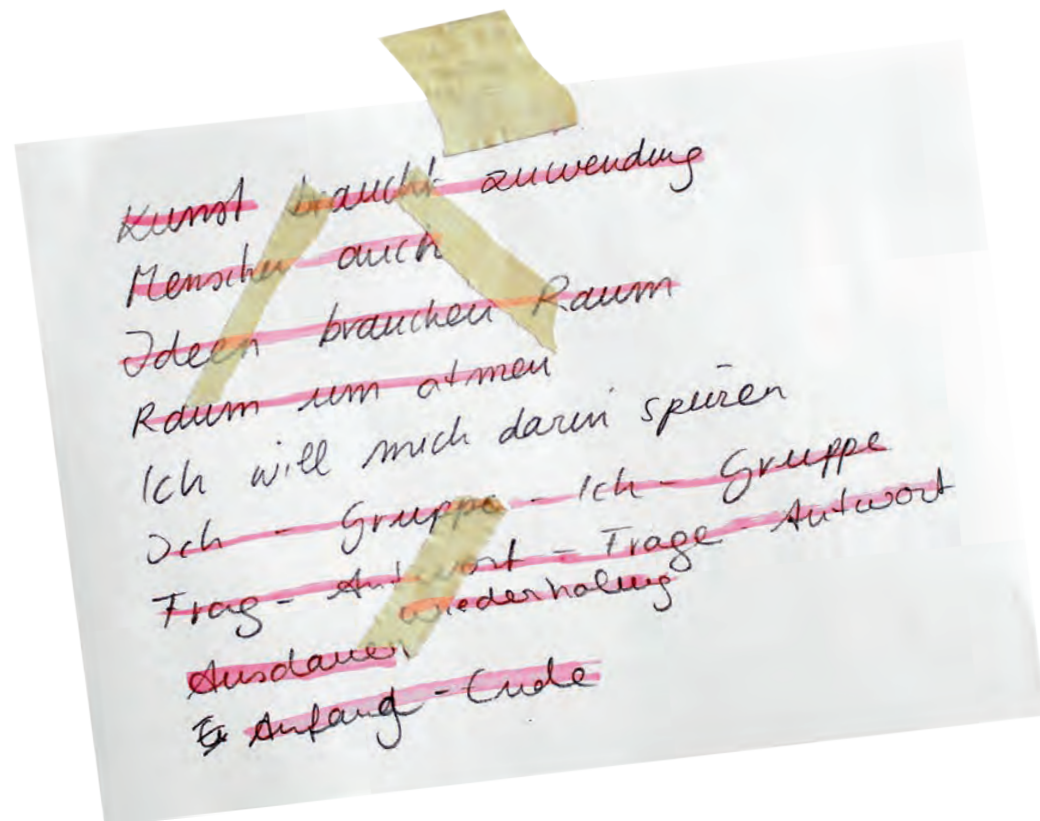 Kunst braucht zuwendung
Menschen auch
Ideen brauchen Raum
Raum um atmen
Ich will mich darin spüren
Ich - Gruppe - Ich - Gruppe
Frag - Antwort - Frage - Antwort
wiederholung
Ausdauer
Anfang - Ende